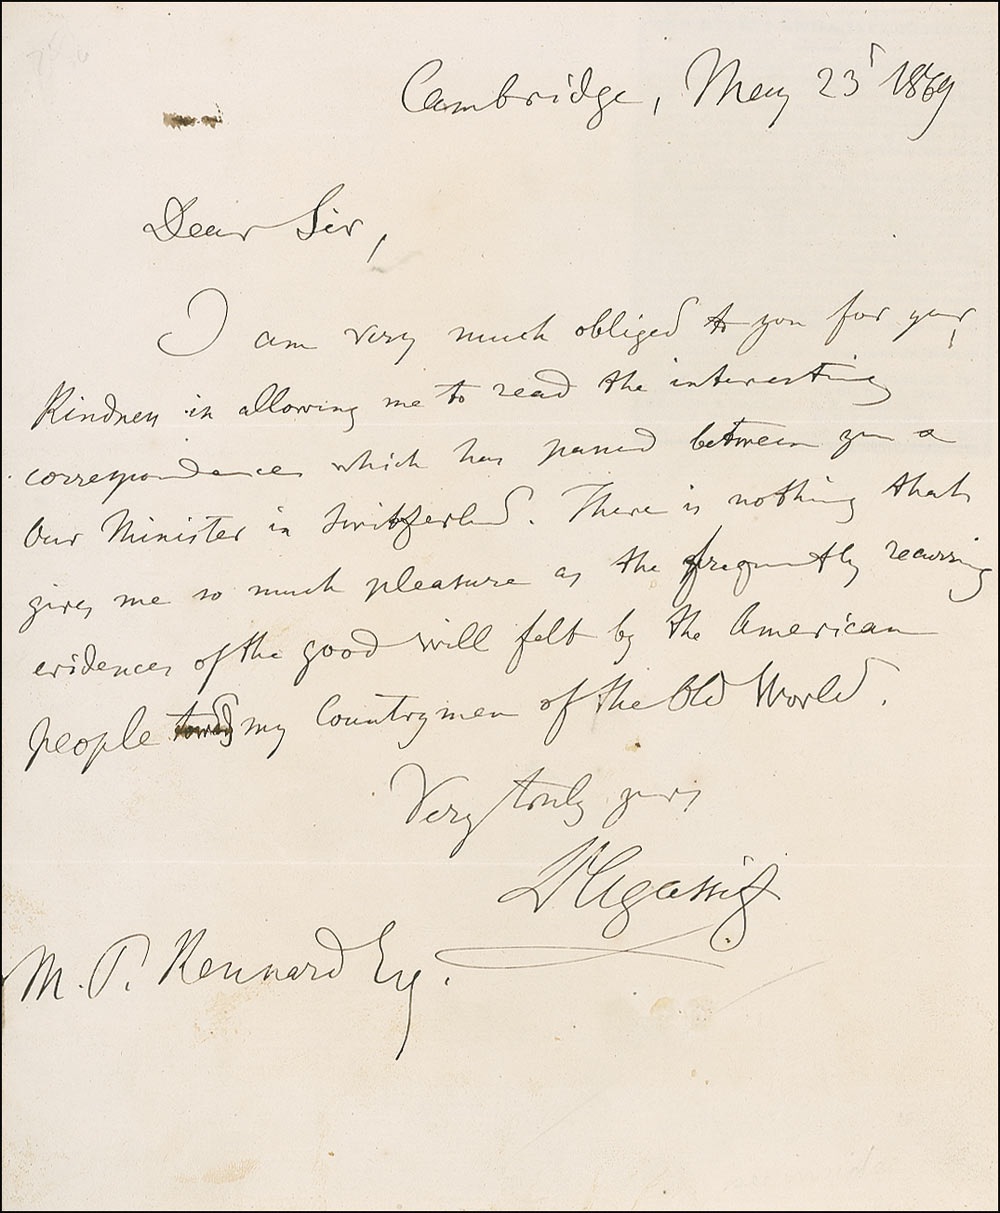 Cambridge, May 23ʳ 1869
Dear Sir,
I am very much obliged to you for your
Kindness in allowing me to read the interesting
correspondences which has passed between you a
Our Minister in Switzerland. There is nothing that
gives me so much pleasure as the frequently recurring
evidences of the good will felt by the American
people towards my Countrymen of the Old World.
Very truly yours
L Agassiz
M. P. Kennard Esq.